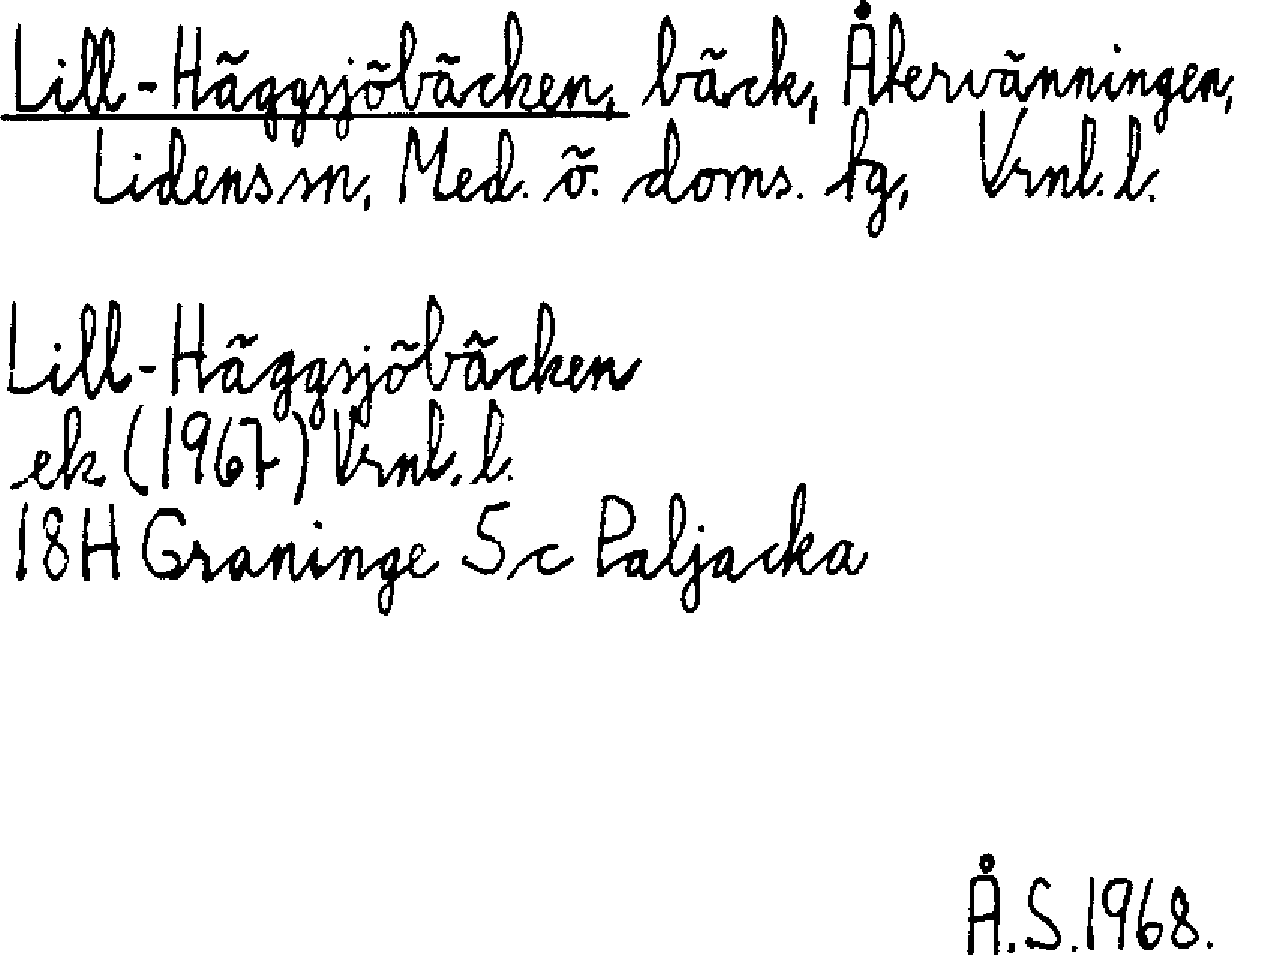 Lill-Häggsjöbäcken, bäck, Återvänningen,
Lidens sn, Med. ö. doms. tg, Vrnl. l.
Lill-Häggsjöbäcken
ek (1967) Vrnl. l.
18H Graninge 5 c Paljacka
Å.S. 1968.